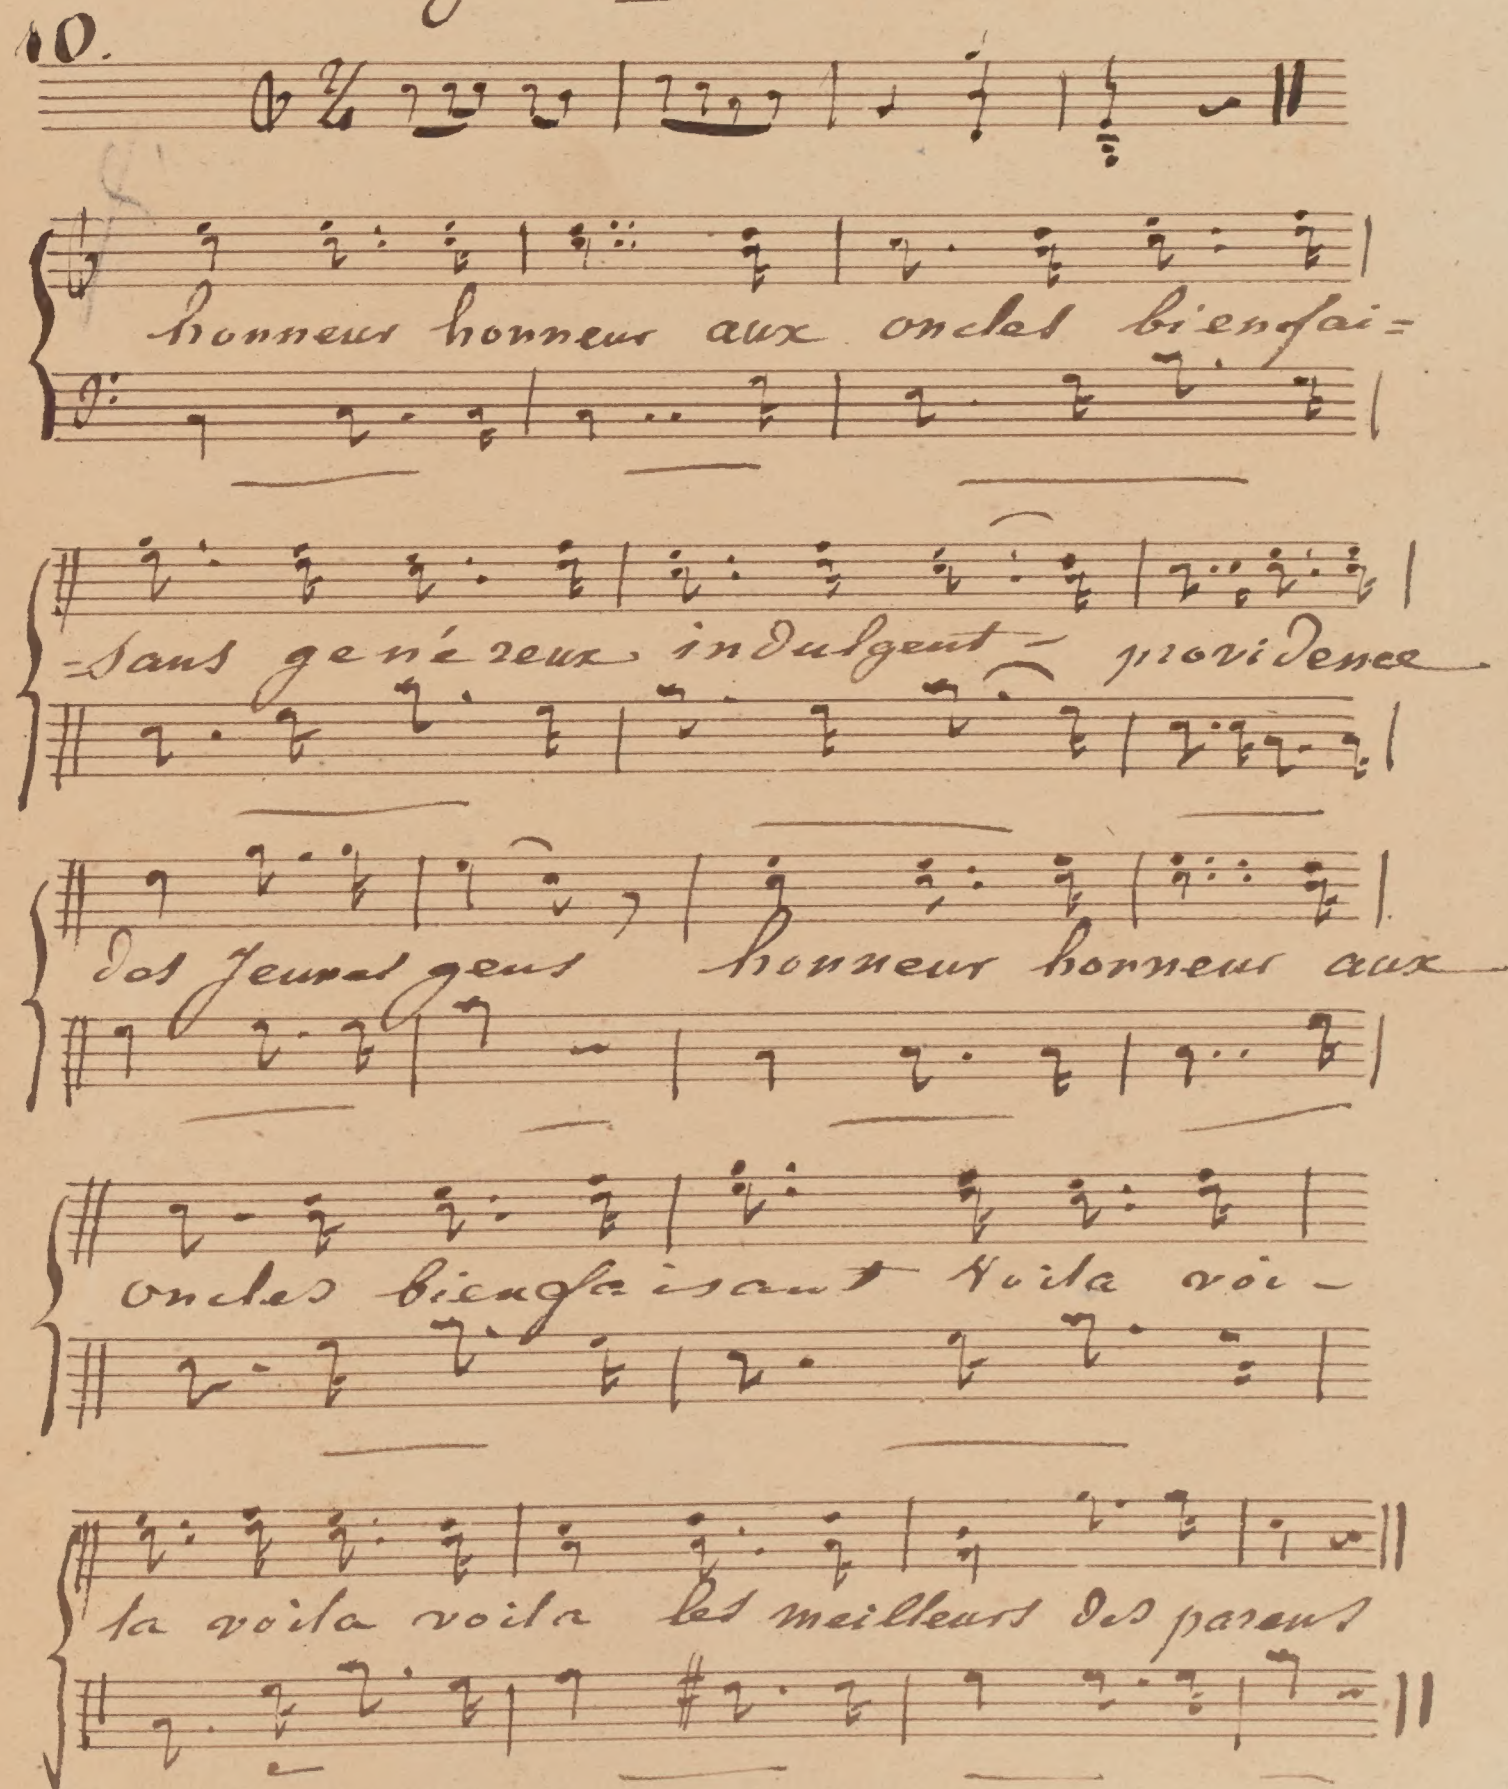 10.
2/4
honneur honneur aux oncles bienfai=
=sans genéreux indulgent - providence
des Jeunes gens honneur honneur aux
oncles bienfaisant Voila voi-
la voila voila les meilleurs des parens